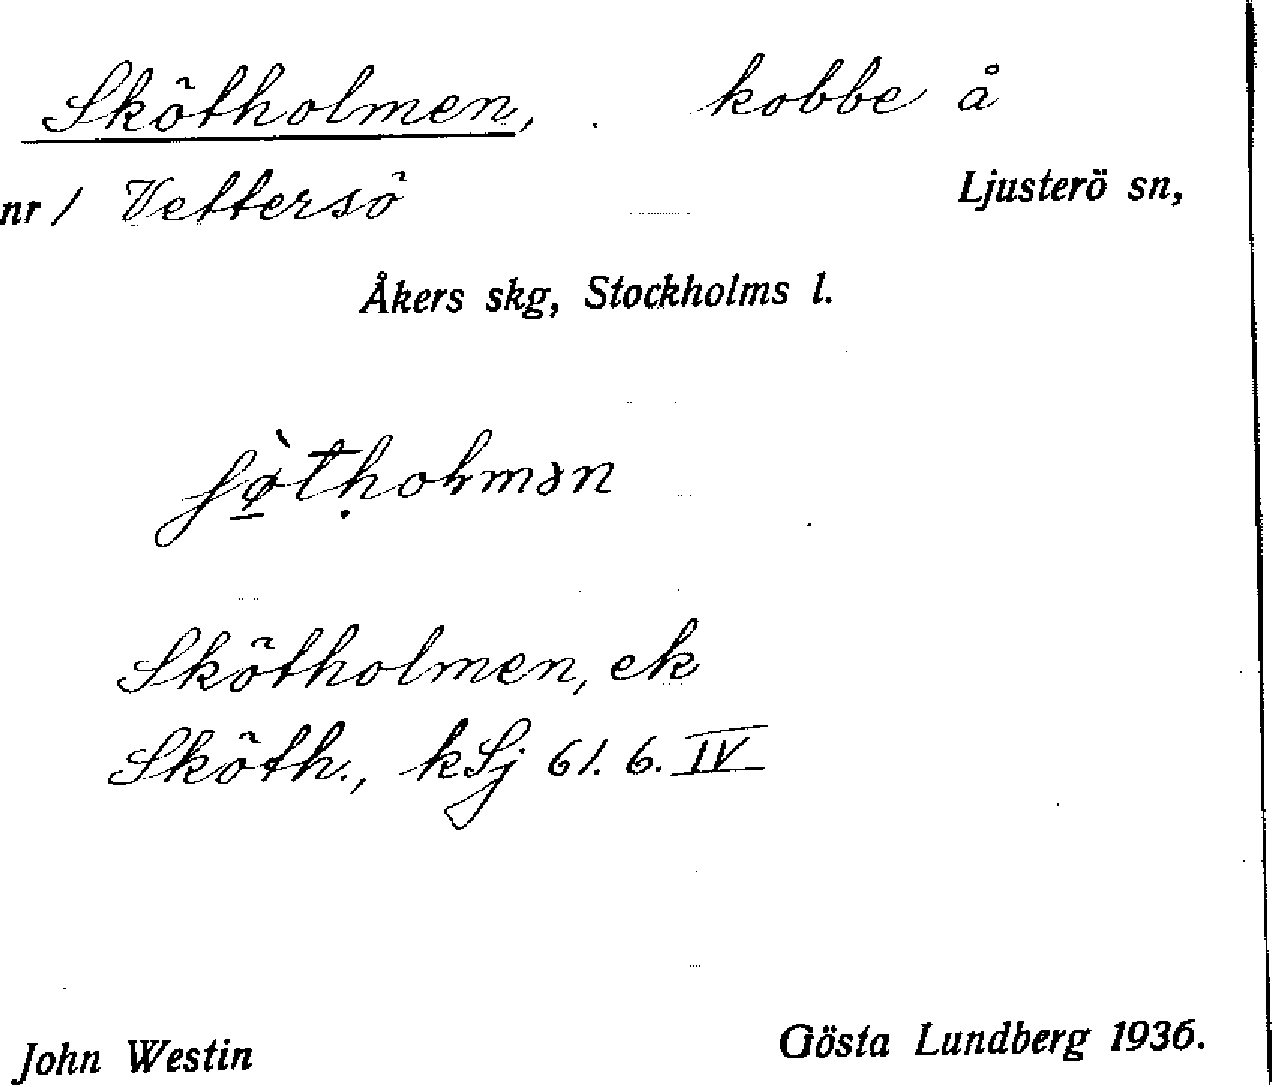 Skötholmen, kobbe å
nr 1 Vettersö Ljusterö sn,
Åkers skg, Stockholms l.
Skötholmen, ek
Sköth., kSj 61. 6. IV
John Westin Gösta Lundberg 1936.